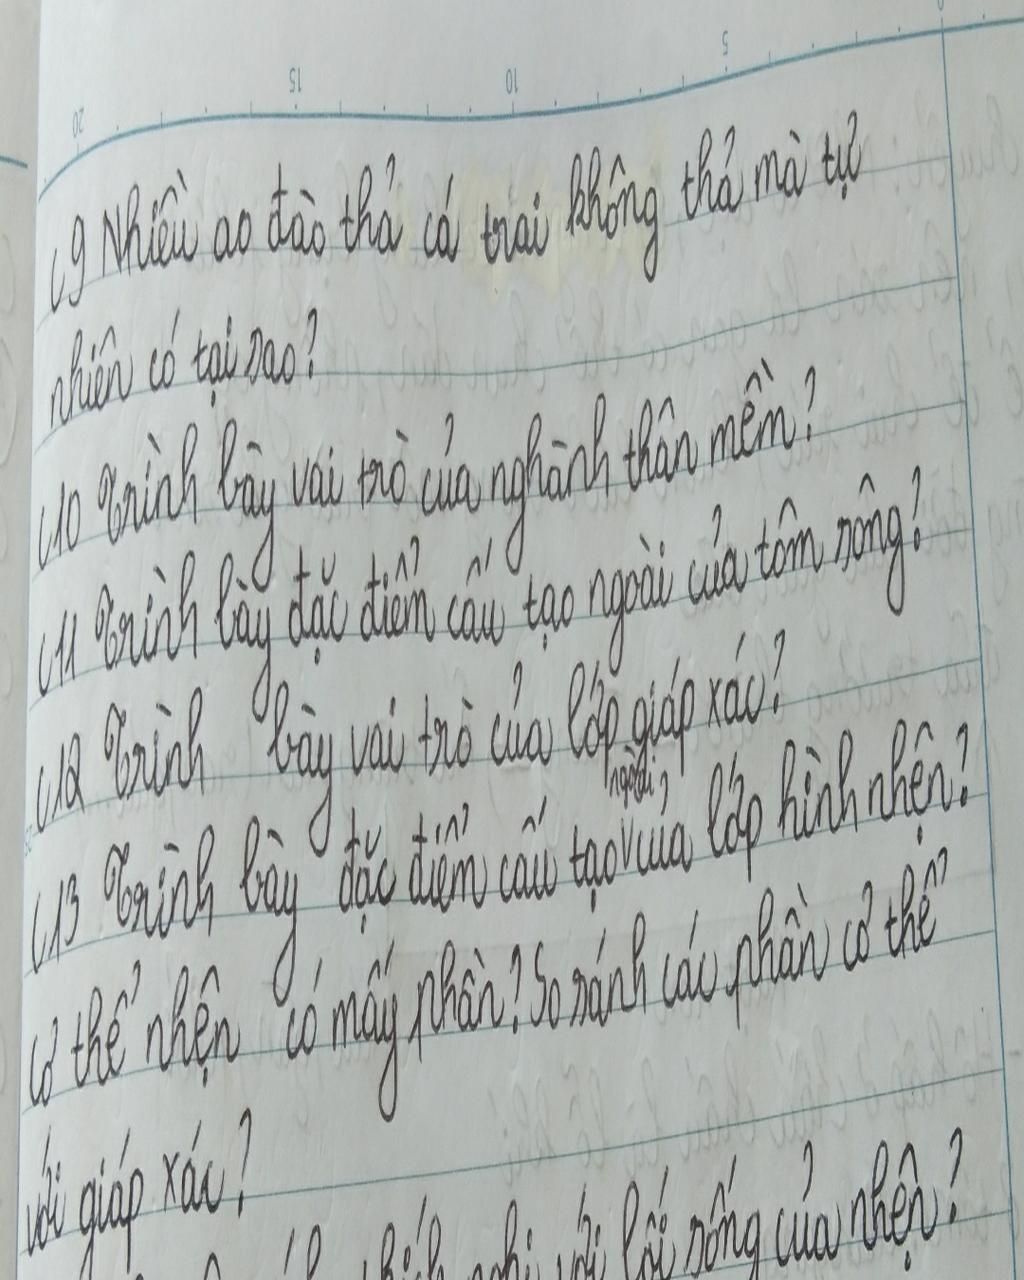 20 15 10 5 0
C9 Nhiều ao đào thả cá trai không thả mà tự
nhiên có tại sao?
C10 Trình bày vai trò của nghành thân mềm?
C11 Trình bày đặc điểm cấu tạo ngoài của tôm sông?
C12 Trình bày vai trò của lớp giáp xác?
ngoài
C13 Trình bày đặc điểm cấu tạo của lớp hình nhện?
Cơ thể nhện có mấy phần? So sánh các phần cơ thể
với giáp xác?
với lối sống của nhện?